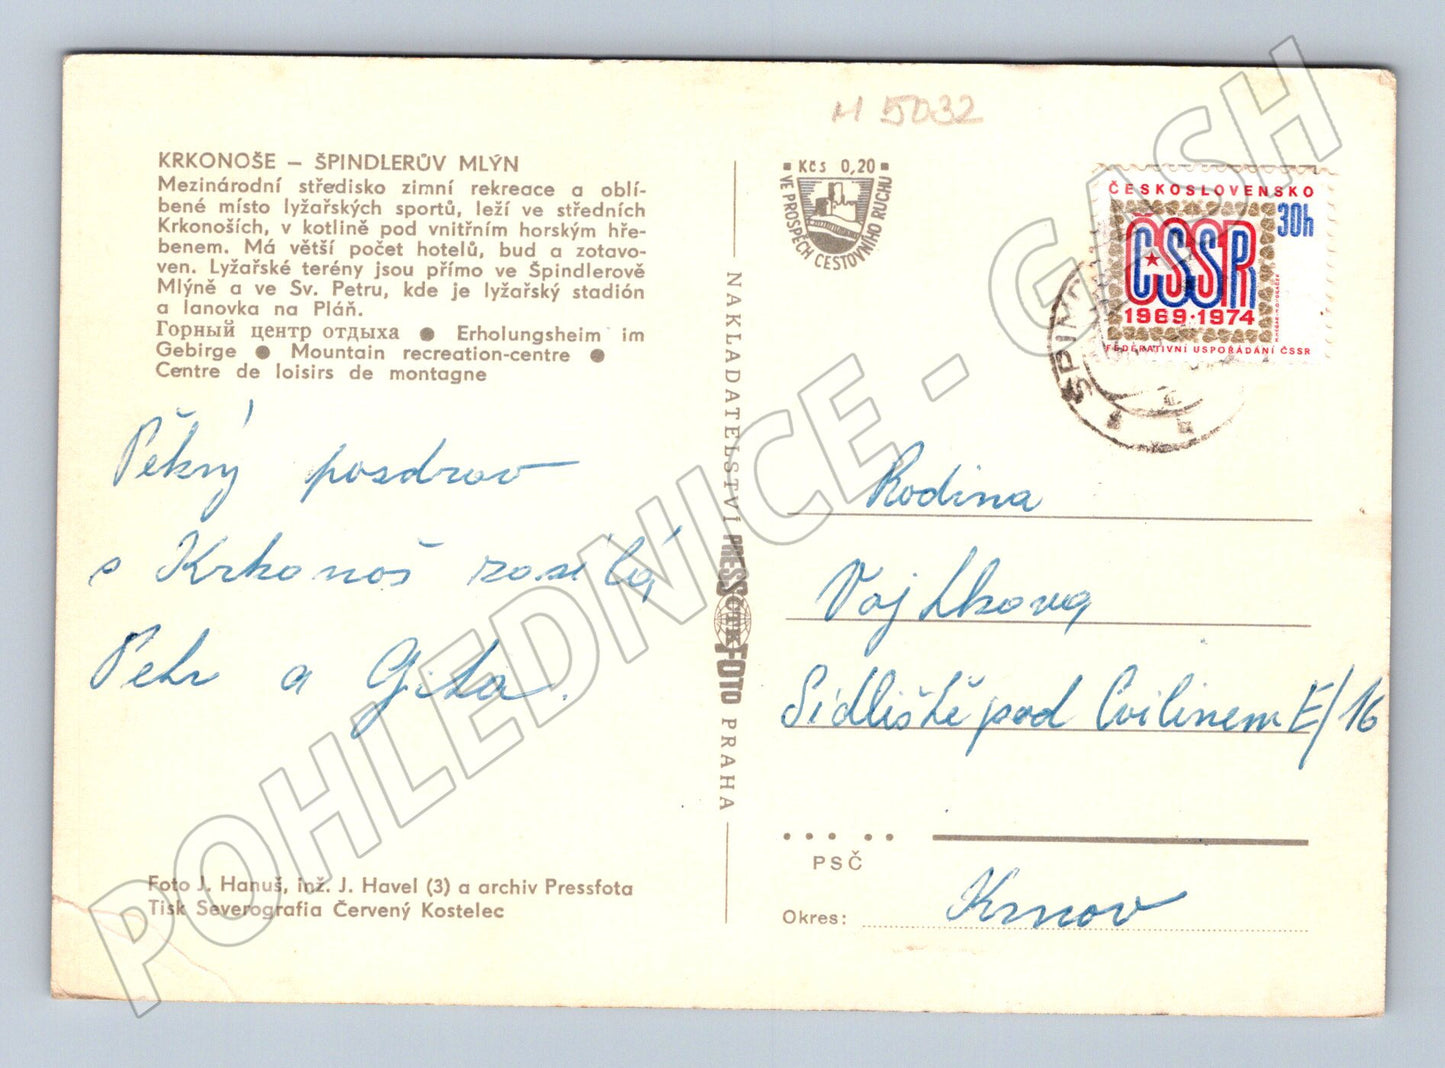 H 5032
KRKONOŠE – ŠPINDLERŮV MLÝN
Mezinárodní středisko zimní rekreace a oblí-
bené místo lyžařských sportů, leží ve středních
Krkonoších, v kotlině pod vnitřním horským hře-
benem. Má větší počet hotelů, bud a zotavo-
ven. Lyžařské terény jsou přímo ve Špindlerově
Mlýně a ve Sv. Petru, kde je lyžařský stadión
a lanovka na Pláň.
Горный центр отдыха ● Erholungsheim im
Gebirge ● Mountain recreation-centre ●
Centre de loisirs de montagne
Pěkný pozdrav
s Krkonoš zasílá
Petr a Gita.
Foto J. Hanuš, inž. J. Havel (3) a archiv Pressfota
Tisk Severografia Červený Kostelec
NAKLADATELSTVÍ PRESSFOTO PRAHA
ČTK
Kčs 0,20
VE PROSPĚCH CESTOVNÍHO RUCHU
ČESKOSLOVENSKO
30h
ČSSR
1969·1974
FEDERATIVNÍ USPOŘÁDÁNÍ ČSSR
Rodina
Vojtkova
Sídliště pod Cvilinem E/16
PSČ
Okres: Krnov
POHLEDNICE - GASH